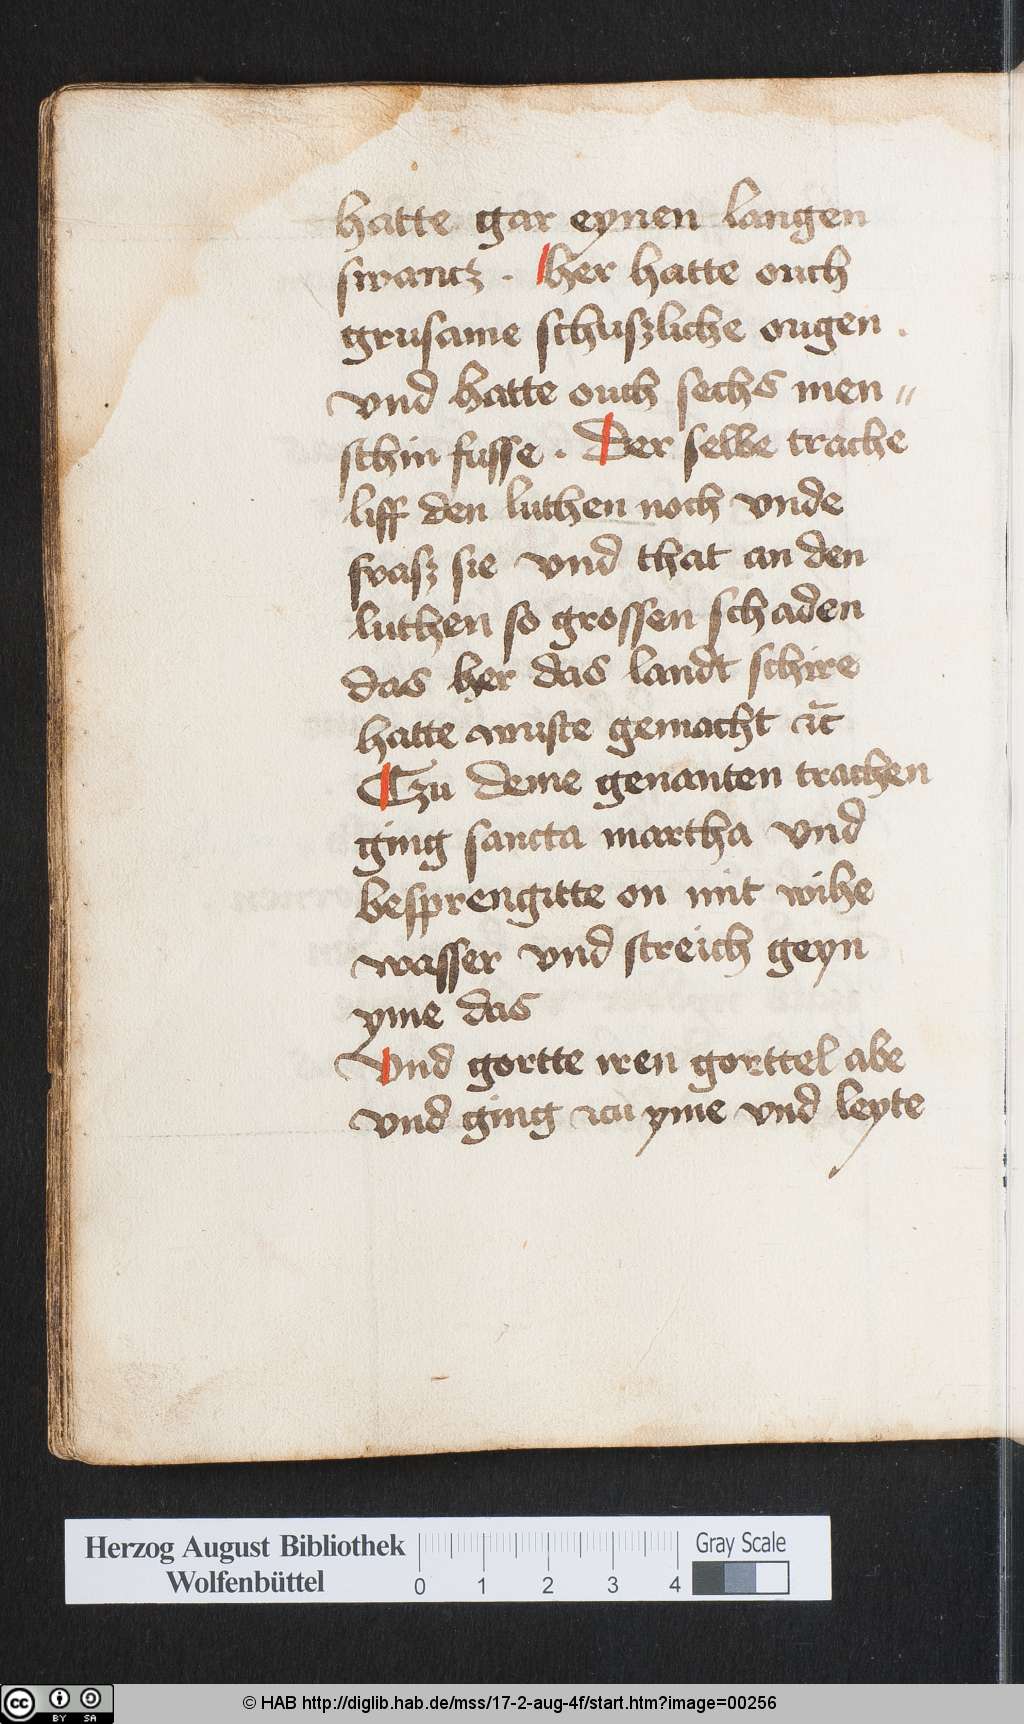 hatte gar eynen langen
swantz . her hatte ouch
grusame schuszliche ougen .
vnd hatte ouch sechs men〃
schin fusse . Der selbe trache
liff den luthen noch vnde
frasz sie vnd that an den
luthen so grossen schaden
das her das landt schire
hatte wuste gemacht ꝛc̄
Czu deme genanten trachen
ging sancta martha vnd
besprengitte on mit wihe
wasser vnd streich geyn
yme das
Vnd gortte iren gorttel abe
vnd ging zcu yme vnd leyte
Herzog August Bibliothek
Wolfenbüttel
0 1 2 3 4
Gray Scale
cc BY SA
© HAB http://diglib.hab.de/mss/17-2-aug-4f/start.htm?image=00256